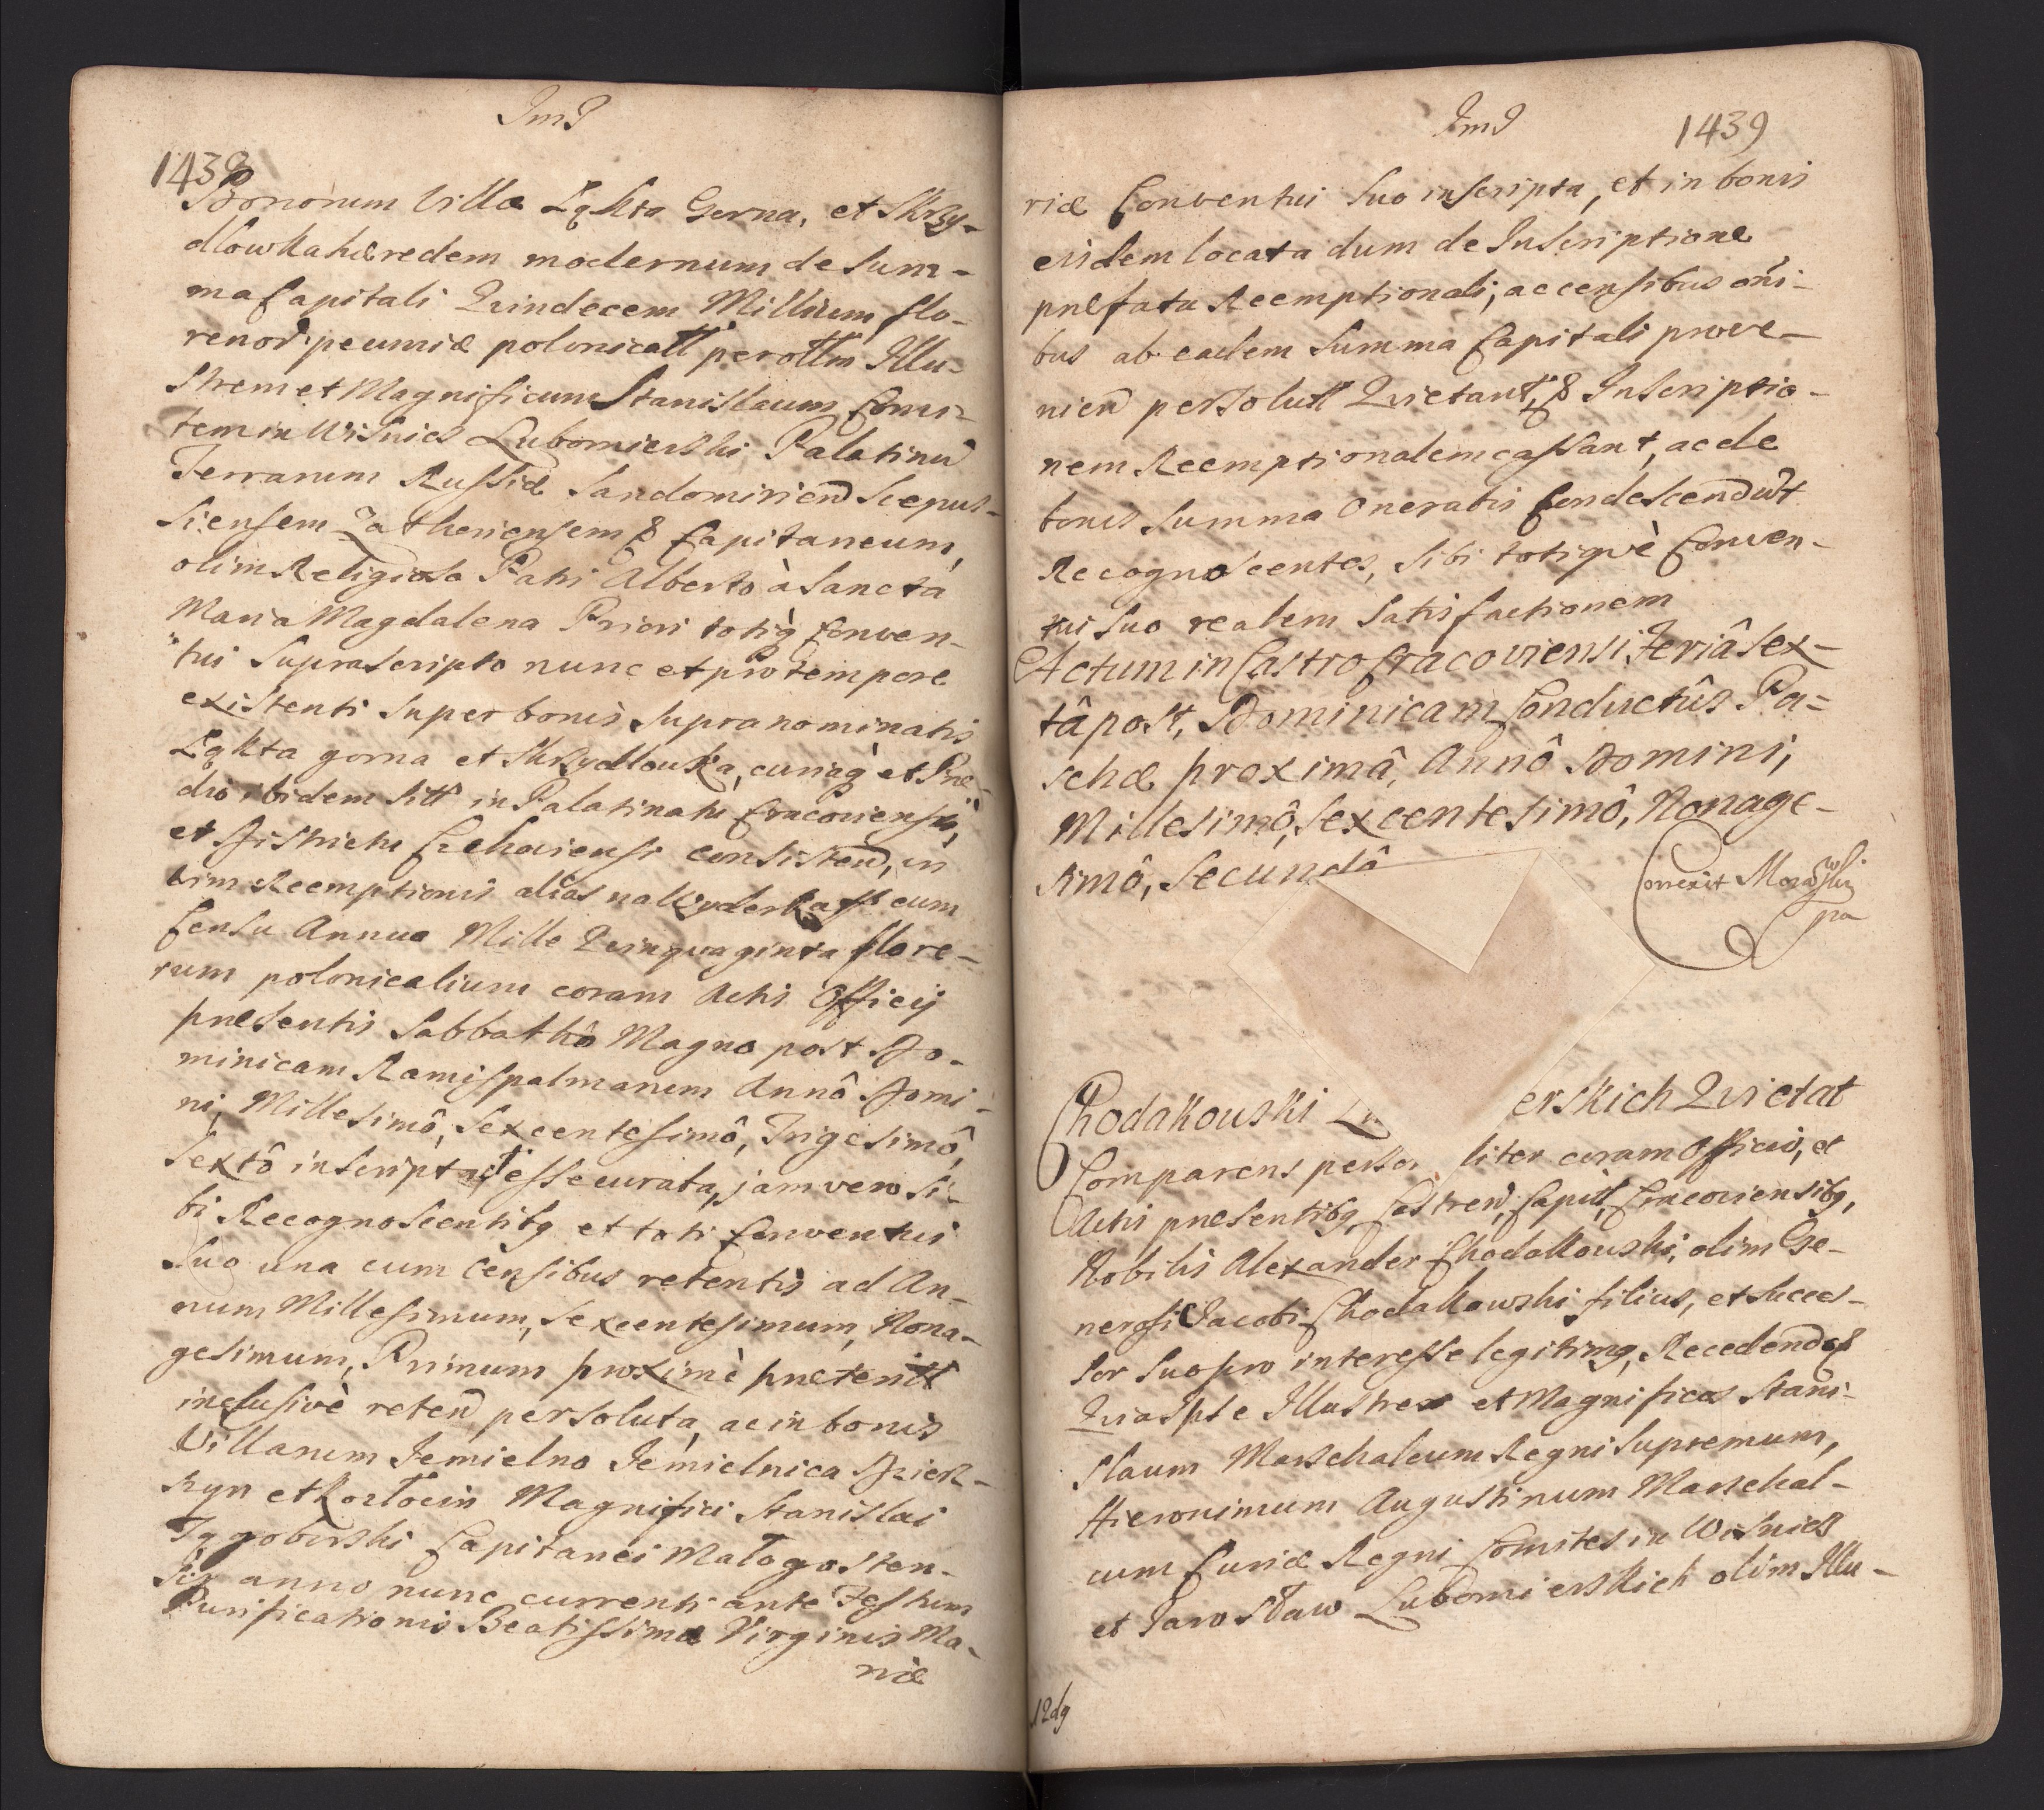 ImI
1438
Bonorum Villæ Łąkta Gorna, et Skrzy-
dlowka hæredem modernum de Sum-
ma Capitali Quindecem Millium flo-
renor pecuniæ polonicall per ollm Illu-
strem et Magnificum Stanislaum Comi-
tem in Wisnicz Lubomierski Palatinu
Terrarum Russiæ Sandomirien Scepus-
siensem Zathoriensem & Capitaneum,
olim Religioso Patri Alberto à Sancta
Maria Magdalena Priori totiq Conven-
tui Suprascripto nunc et pro tempore
existenti Super bonis Supranominatis
Łąkta gorna et Skrzydlouka, curiaq et Præ-
dio ibidem Sitt in Palatinatu Cracoviensi,
et Districtu Czchoviensi consisten, in
vim Reemptionis alias na Wyderkaff cum
Censu Annuo Mille Quinquaginta flore-
rum polonicalium coram Actis Officij
præsentis Sabbathô Magno post Do-
minicam Ramispalmarum Annô Domi-
ni, Millesimô, Sexcentesimô, Trigesimô,
Sextô inscripta et assecurata, jam vero si-
bi Recognoscentibq et toti Conventui
Suo una cum Censibus retentis ad An-
num Millesimum, Sexcentesimum, Nona-
gesimum, Primum proximè præteritt
inclusivè reten persoluta, ac in bonis
Villarum Jemielno Jemielnica Dzierz-
zyn et Karłocin Magnifici Stanislai
Tęgoborski Capitanei Małogosten-
sis anno nunc currenti ante Festum
Purificationis Beatissimæ Virginis Ma-
riæ
ImI
1439
riæ Conventui Suo inscripta, et in bonis
eisdem locata dum de Inscriptione
præfata Reemptionali, ac censibus omi-
bus ab eadem Summa Capitali prove-
nien persolutt Quietant, & Inscriptio-
nem Reemptionalem cassant, ac de
bonis Summa Oneratis Condescendut
Recognoscentes, Sibi totiquè Conven-
tui Suo realem Satisfactionem
Actum in Castro Cracoviensi Feriâ Sex-
tâ post, Dominicam Conductûs Pa-
schæ proximâ, Annô Domini,
Millesimô, Sexcentesimô, Nonage-
simô, Secundô
Correxit
pa
Chodakouski Lu erskich Quietat
Comparens perso liter coram Officio, et
Actis præsentibq Castren, Capitt, Cracoviensibq,
Nobilis Alexander Chodakouski, olim Ge-
nerosi Jacobi Chodakowski filius, et Succes-
sor Suo pro interesse legitimq, Recedendo &
Quia Ipse Illustres et Magnificos Stani-
slaum Marschalcum Regni Supremum,
Hieronimum Augustinum Marschal-
cum Curiæ Regni Comites in Wisnicz
et Jarosław Lubomierskich olim Illu-